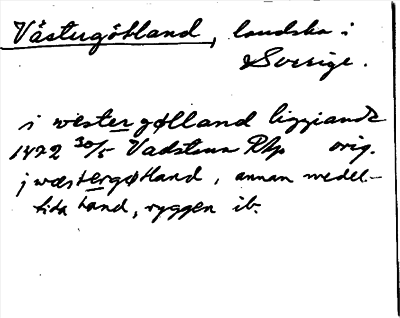 Västergötland, landska i
Sverige.
i westergøtland liggiande
1472 30/5 Vadstena RAp orig.
j wæstergøtland, annan medel-
tida hand, ryggen ib.